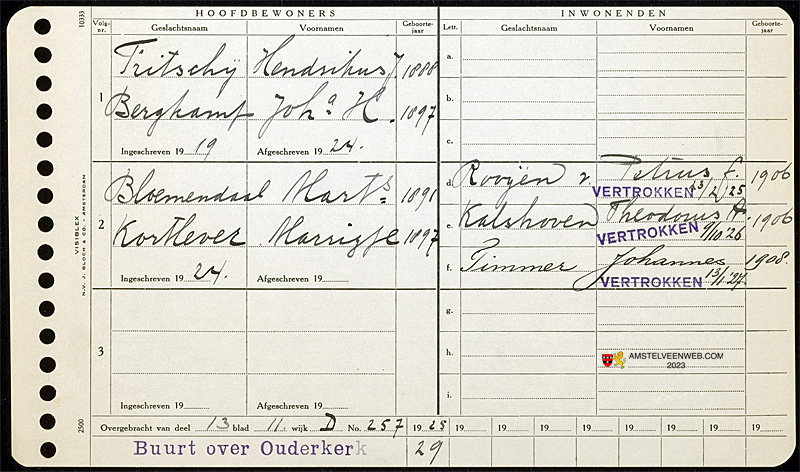 10333
HOOFDBEWONERS
INWONENDEN
Volg-nr. Geslachtsnaam Voornamen Geboorte-jaar
Lett. Geslachtsnaam Voornamen Geboorte-jaar
1
Fritschij Hendrikus J. 1888
Bergkamp Joh.a H. 1897
Ingeschreven 19 19 Afgeschreven 19 24.
a.
b.
c.
2
Bloemendaal Marts 1891
Kortlever Marrigje 1897
Ingeschreven 19 24. Afgeschreven 19
d. Rooijen v. Petrus J. 1906
VERTROKKEN 23/2 '25
e. Kalshoven Theodorus A. 1906
VERTROKKEN 9/10 '26
f. Timmer Johannes 1908.
VERTROKKEN 13/1 '27.
3
Ingeschreven 19 Afgeschreven 19
g.
h.
i.
AMSTELVEENWEB.COM
2023
VISIBLEX
N.V. J. BLOCH & CO. - AMSTERDAM
2500
Overgebracht van deel 13 blad 11. wijk D No. 257 1925 19 19 19 19 19 19 19 19
Buurt over Ouderkerk 29